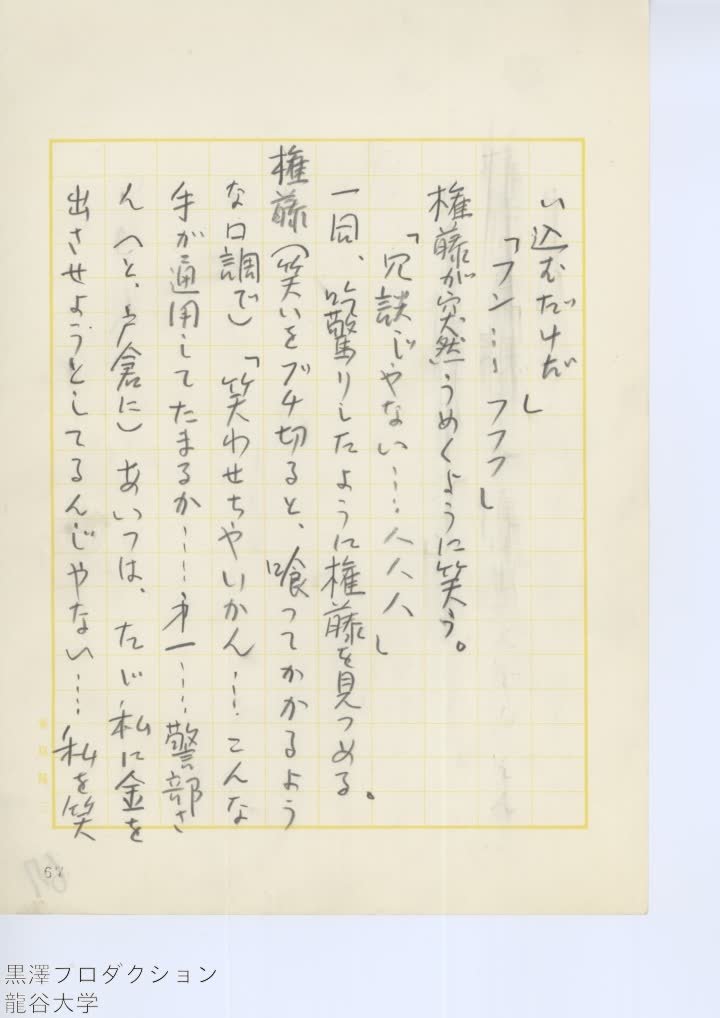 い込むだけだ」
「フン……フフフ」
権藤が突然うめくように笑う。
「冗談じゃない……ハハハ」
一同、吃驚りしたように権藤を見つめる。
権藤（笑いをブチ切ると、喰ってかかるよう
な口調で）「笑わせちゃいかん……こんな
手が通用してたまるか……才一……警部さ
ん（と、戸倉に）あいつは、たゞ私に金を
出させようとしてるんじゃない……私を笑
67
黒澤プロダクション
龍谷大学